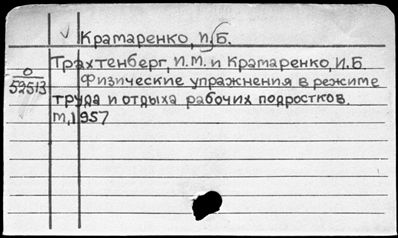 √ Крамаренко, И.Б.
Трахтенберг, И.М. и Крамаренко, И.Б.
О
52513
Физические упражнения в режиме
труда и отдыха рабочих подростков.
М, 1957